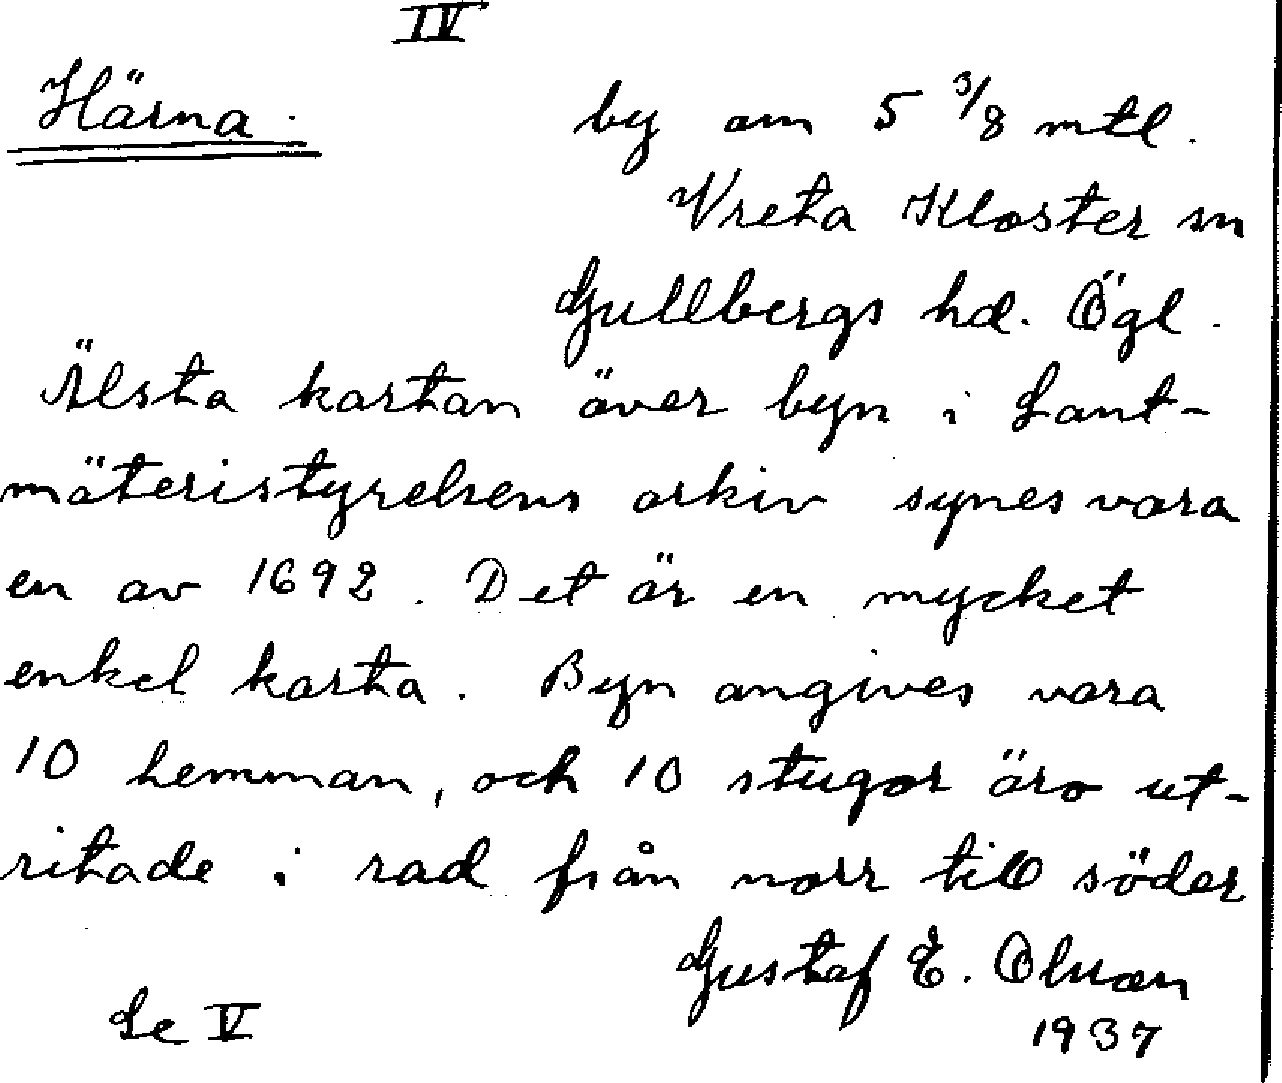 IV
Härna. by om 5 3/8 mtl.
Vreta Kloster sn
Gullbergs hd. Ögl.
Älsta kartan över byn i Lant-
mäteristyrelsens arkiv synes vara
en av 1692. Det är en mycket
enkel karta. Byn angives vara
10 hemman, och 10 stugor äro ut-
ritade i rad från norr till söder
Gustaf E. Olsson
Se V 1937